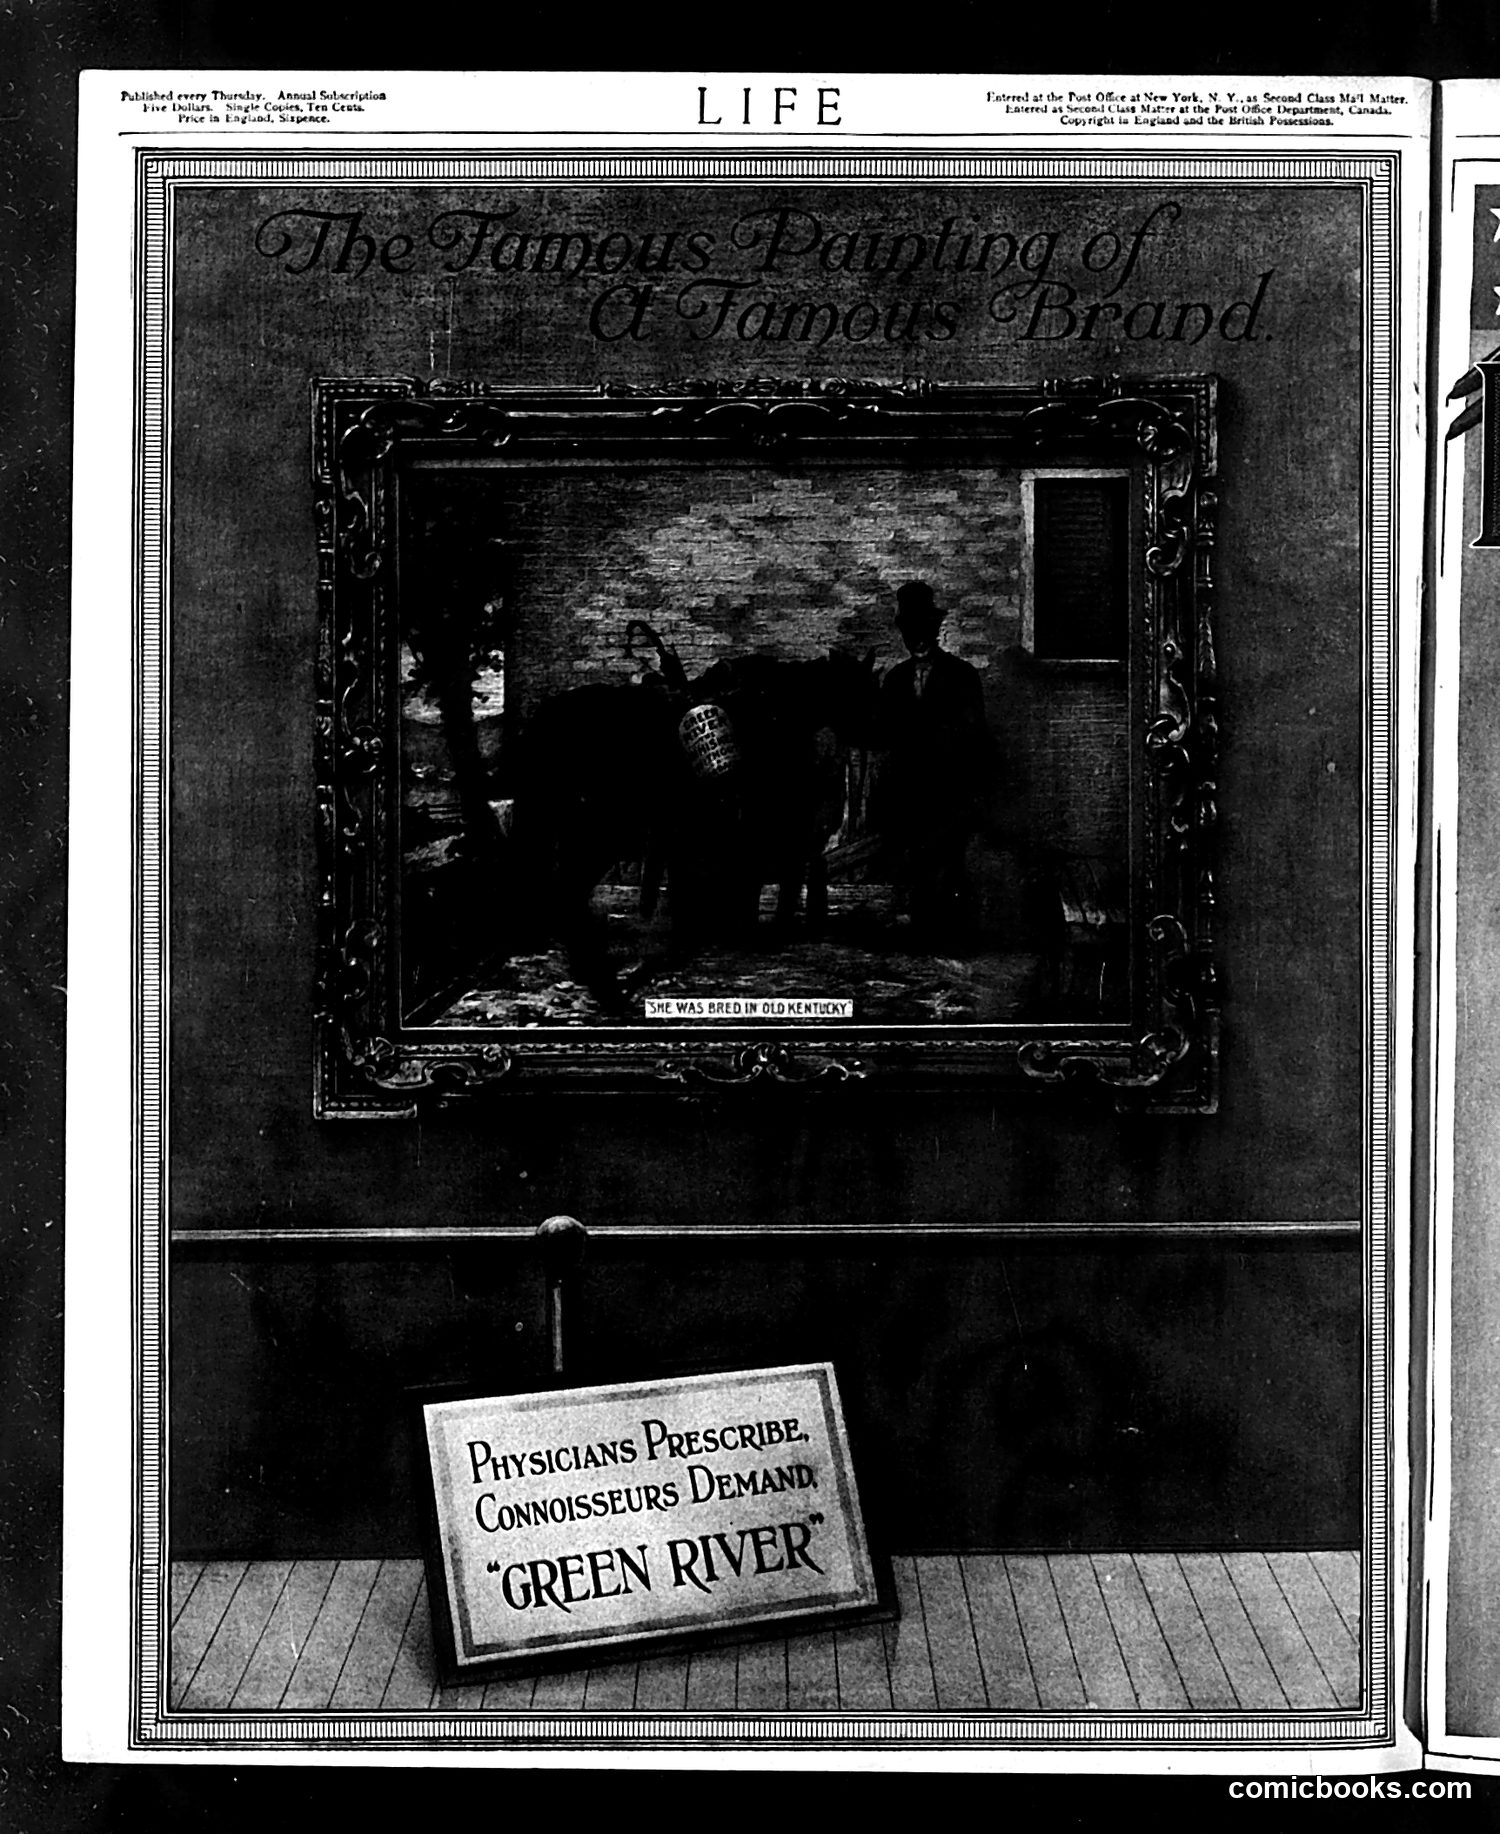 Published every Thursday. Annual Subscription
Five Dollars. Single Copies, Ten Cents.
Price in England, Sixpence.
LIFE
Entered at the Post Office at New York, N. Y., as Second Class Mail Matter.
Entered as Second Class Matter at the Post Office Department, Canada.
Copyright in England and the British Possessions.
The Famous Painting of
A Famous Brand.
"SHE WAS BRED IN OLD KENTUCKY"
PHYSICIANS PRESCRIBE,
CONNOISSEURS DEMAND,
"GREEN RIVER"
comicbooks.com